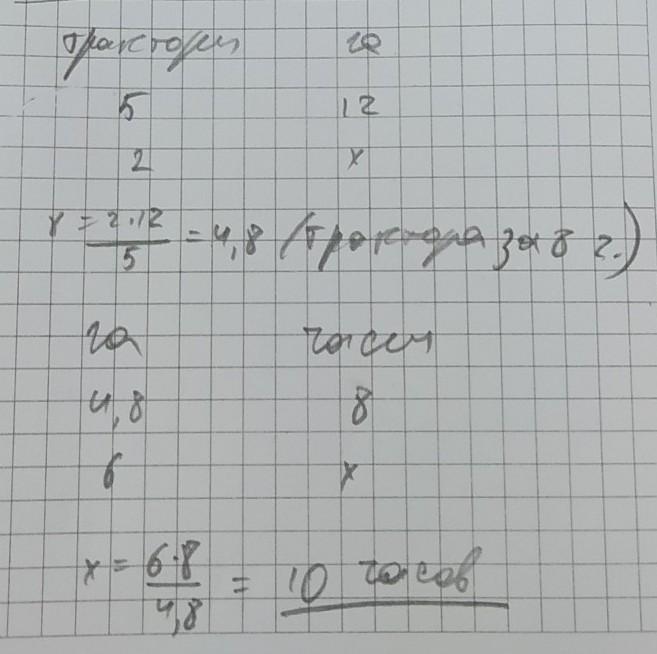 тракторы га
5 12
2 x
x = 2·12/5 = 4,8 (трактора за 8 ч.)
га часы
4,8 8
6 x
x = 6·8/4,8 = 10 часов